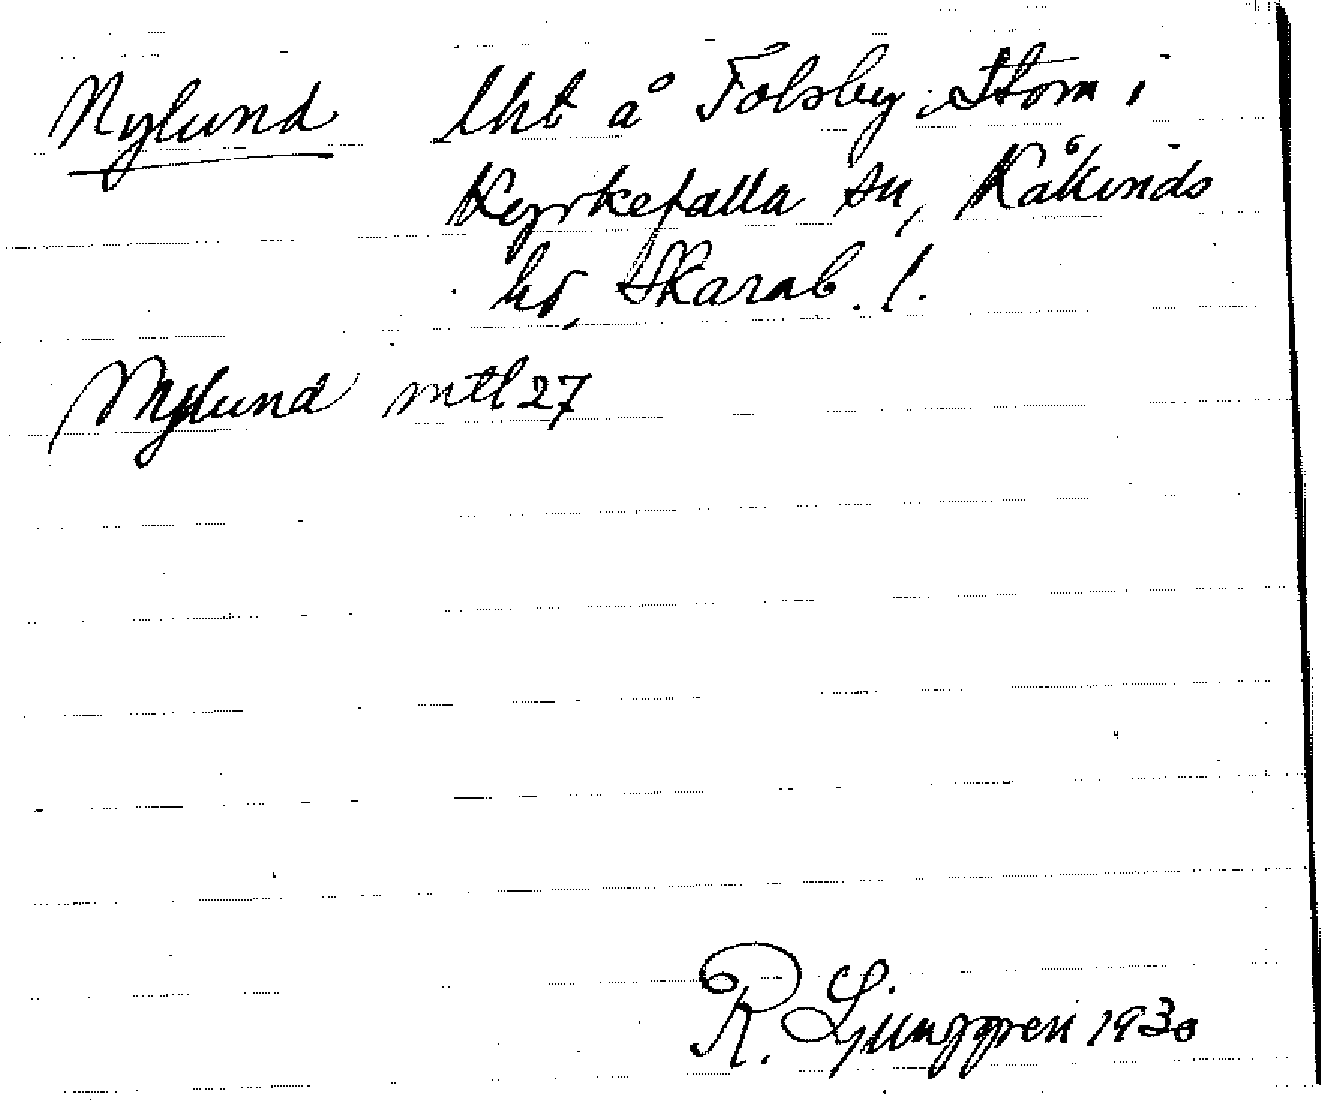 Nylund lht å Folsby, Stom i
Kyrkefalla sn, Kåkinds
hd, Skarab. l.
Nylund mtl 27
R. Ljunggren 1930